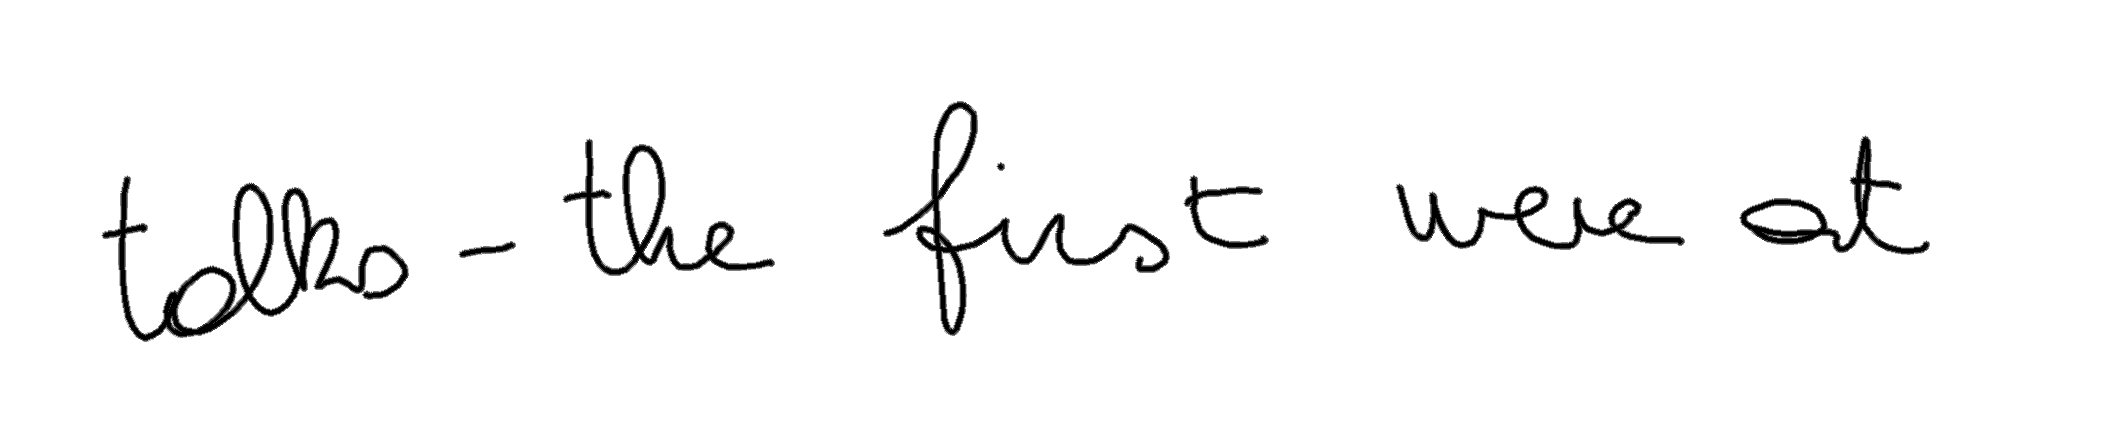 talks - the first were at